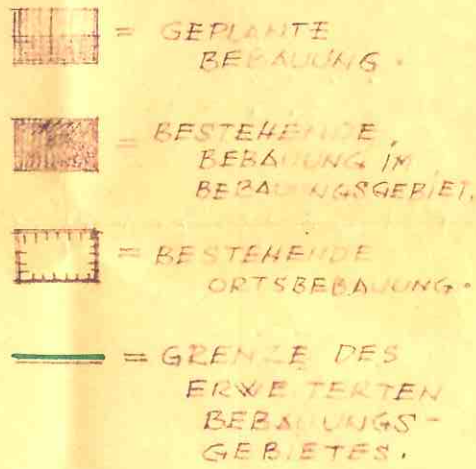 = GEPLANTE
BEBAUUNG.
= BESTEHENDE
BEBAUUNG IM
BEBAUUNGSGEBIET.
= BESTEHENDE
ORTSBEBAUUNG.
= GRENZE DES
ERWEITERTEN
BEBAUUNGS-
GEBIETES.